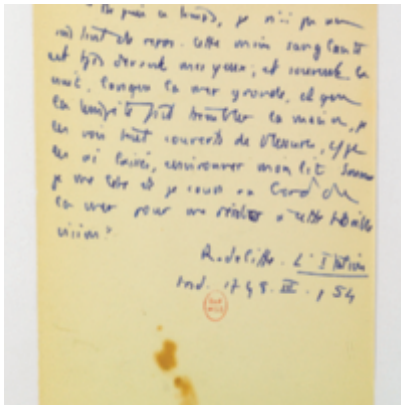 je n'ai pu
instant de repos. cette main sanglante
est tjs devant mes yeux ; et souvent la
nuit, lorsque la mer gronde, et que
la tempête fait trembler la maison, je
les vois tout couverts de blessures,
les ai laissés, environner mon lit.
je me lève et je cours au bord de
la mer pour me
vision »
Radcliffe. L'Italien
trad. 1798. III. p 54